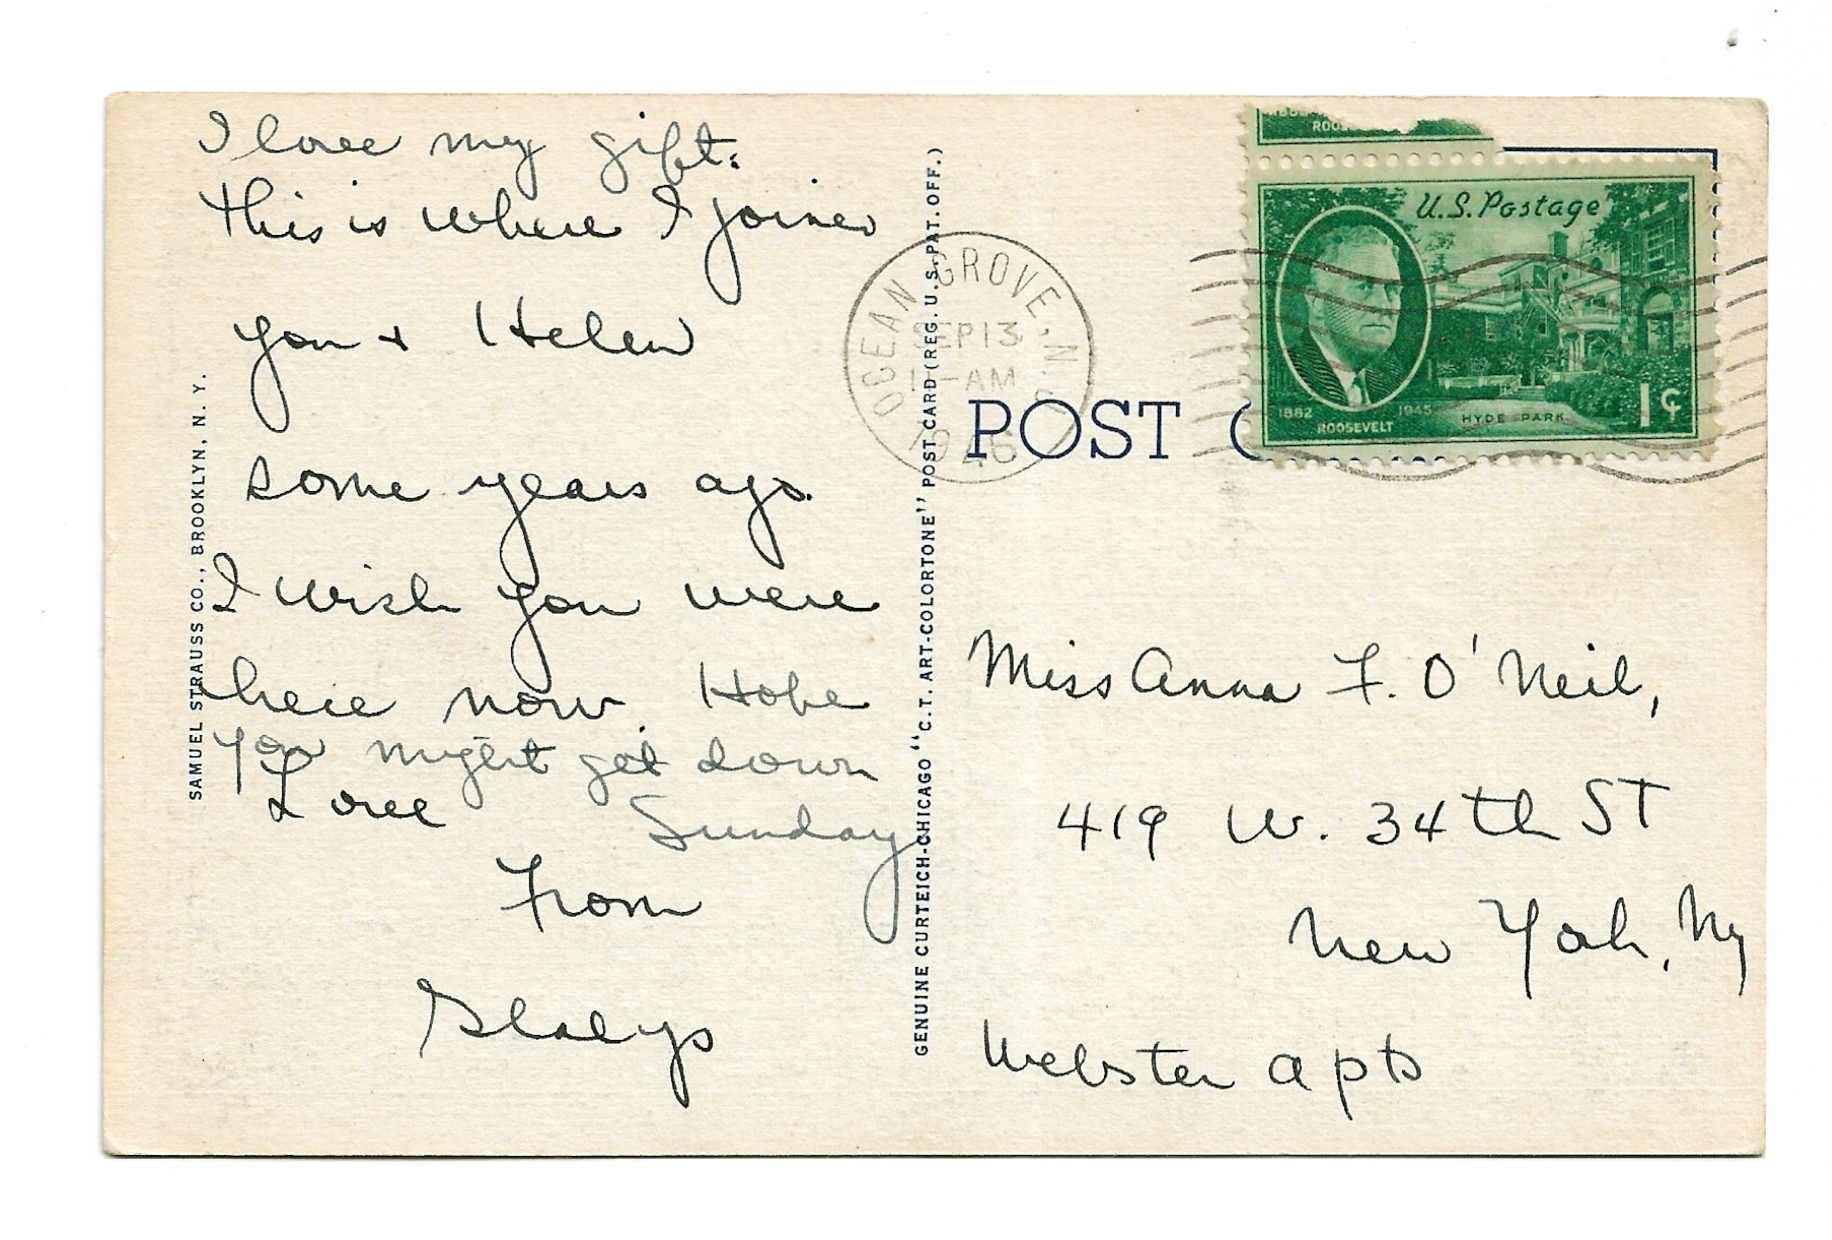 I love my gift.
This is where I joined
you + Helen
some years ago.
I wish you were
here now. Hope
you might get down
Sunday
Love
From
Gladys
SAMUEL STRAUSS CO., BROOKLYN, N. Y.
GENUINE CURTEICH-CHICAGO "C.T. ART-COLORTONE" POST CARD (REG. U.S. PAT. OFF.)
OCEAN GROVE. N.J.
SEP 13
AM
1946
POST C
ROOS
U.S. Postage
1882
1945
ROOSEVELT
HYDE PARK
1¢
Miss Anna F. O'Neil,
419 W. 34th ST
New York, Ny
Webster apts